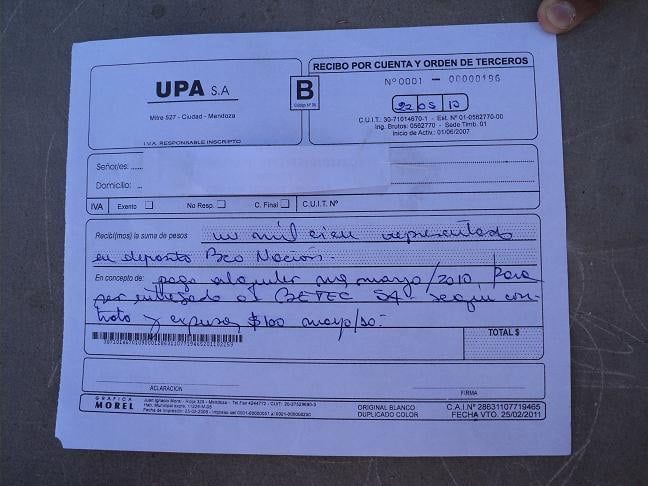 UPA S.A
Mitre 527 - Ciudad - Mendoza
I.V.A. RESPONSABLE INSCRIPTO
B
Código Nº 06
RECIBO POR CUENTA Y ORDEN DE TERCEROS
Nº 0001 - 00000196
22 05 10
C.U.I.T.: 30-71014670-1 - Est. Nº 01-0562770-00
Ing. Brutos: 0562770 - Sede Timb. 01
Inicio de Activ.: 01/06/2007
Señor/es:
Domicilio:
IVA Exento No Resp. C. Final C.U.I.T. Nº
Recibí(mos) la suma de pesos un mil cien representado
en deposito Bco Nación.
En concepto de: pago alquiler mes marzo/2010, Para
ser entregado a BETEC SA. según con-
trato y expensas $100 mayo/10.-
TOTAL $
ACLARACION
FIRMA
GRAFICA
MOREL
ORIGINAL BLANCO
DUPLICADO COLOR
C.A.I Nº 28631107719465
FECHA VTO. 25/02/2011